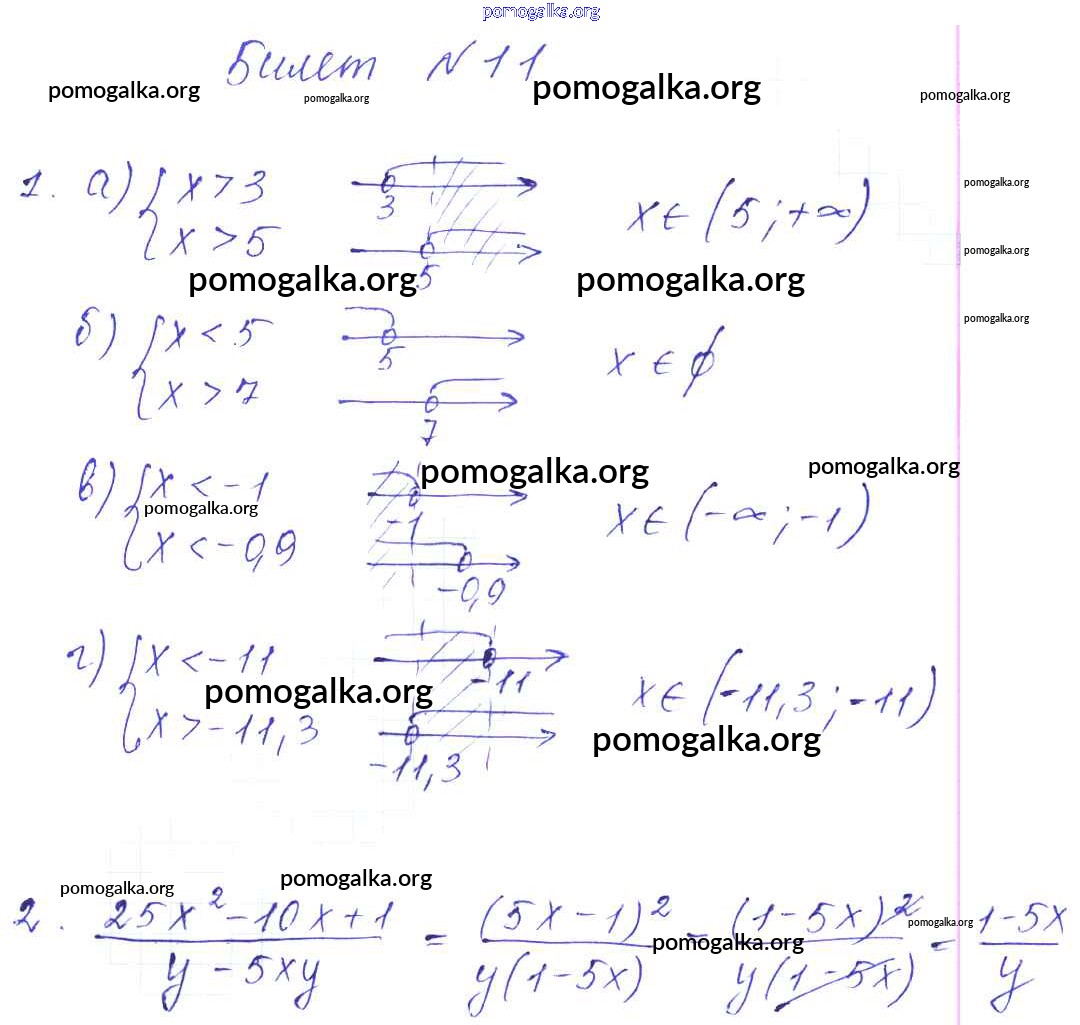 pomogalka.org
Билет N 11
pomogalka.org pomogalka.org pomogalka.org pomogalka.org
1. а) { x > 3 3 x ∈ (5; +∞) pomogalka.org
x > 5 5 pomogalka.org
pomogalka.org pomogalka.org
б) { x < 5 5 x ∈ ∅ pomogalka.org
x > 7 7
pomogalka.org pomogalka.org
в) { x < -1 -1 x ∈ (-∞; -1)
pomogalka.org
x < -0,9 -0,9
г) { x < -11 -11 x ∈ (-11,3; -11)
pomogalka.org
x > -11,3 -11,3
pomogalka.org
pomogalka.org pomogalka.org
2. (25x² - 10x + 1)/(y - 5xy) = (5x - 1)²/(y(1 - 5x)) = (1 - 5x)²/(y(1 - 5x)) = (1 - 5x)/y
pomogalka.org pomogalka.org